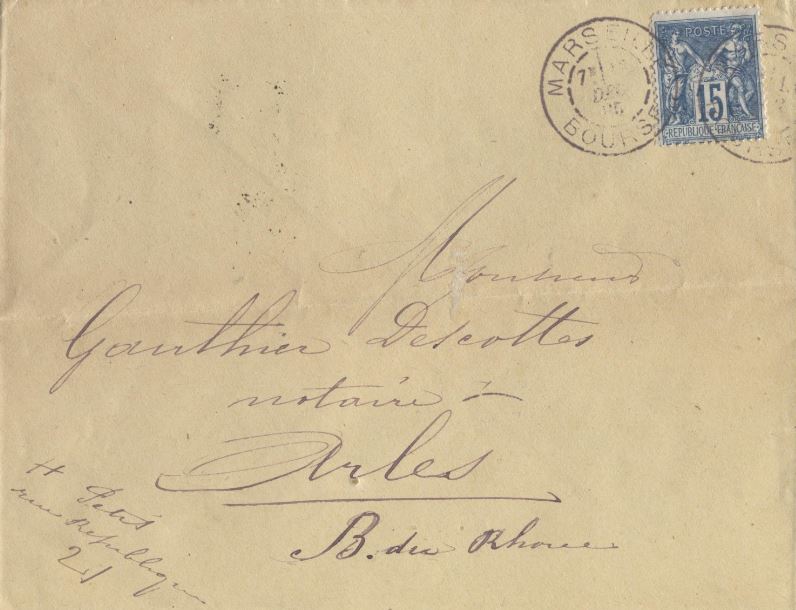 MARSEILLE
7E
DEC
BOURSE
POSTE
15
REPUBLIQUE FRANÇAISE
Monsieur
Gauthier Descottes
notaire à
Arles
B. du Rhone
Petis
rue République
21